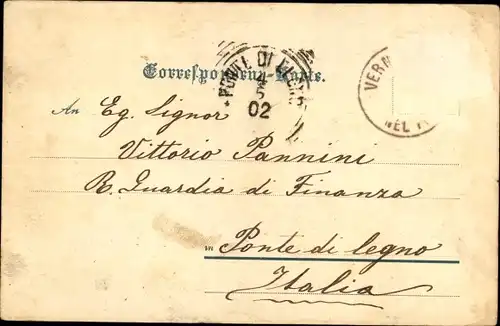 Correspondenz-Karte.
PONTE DI LEGNO
4
5
02
VERM
An Eg. Signor
Vittorio Pannini
R. Guardia di Finanza
in Ponte di legno
Italia